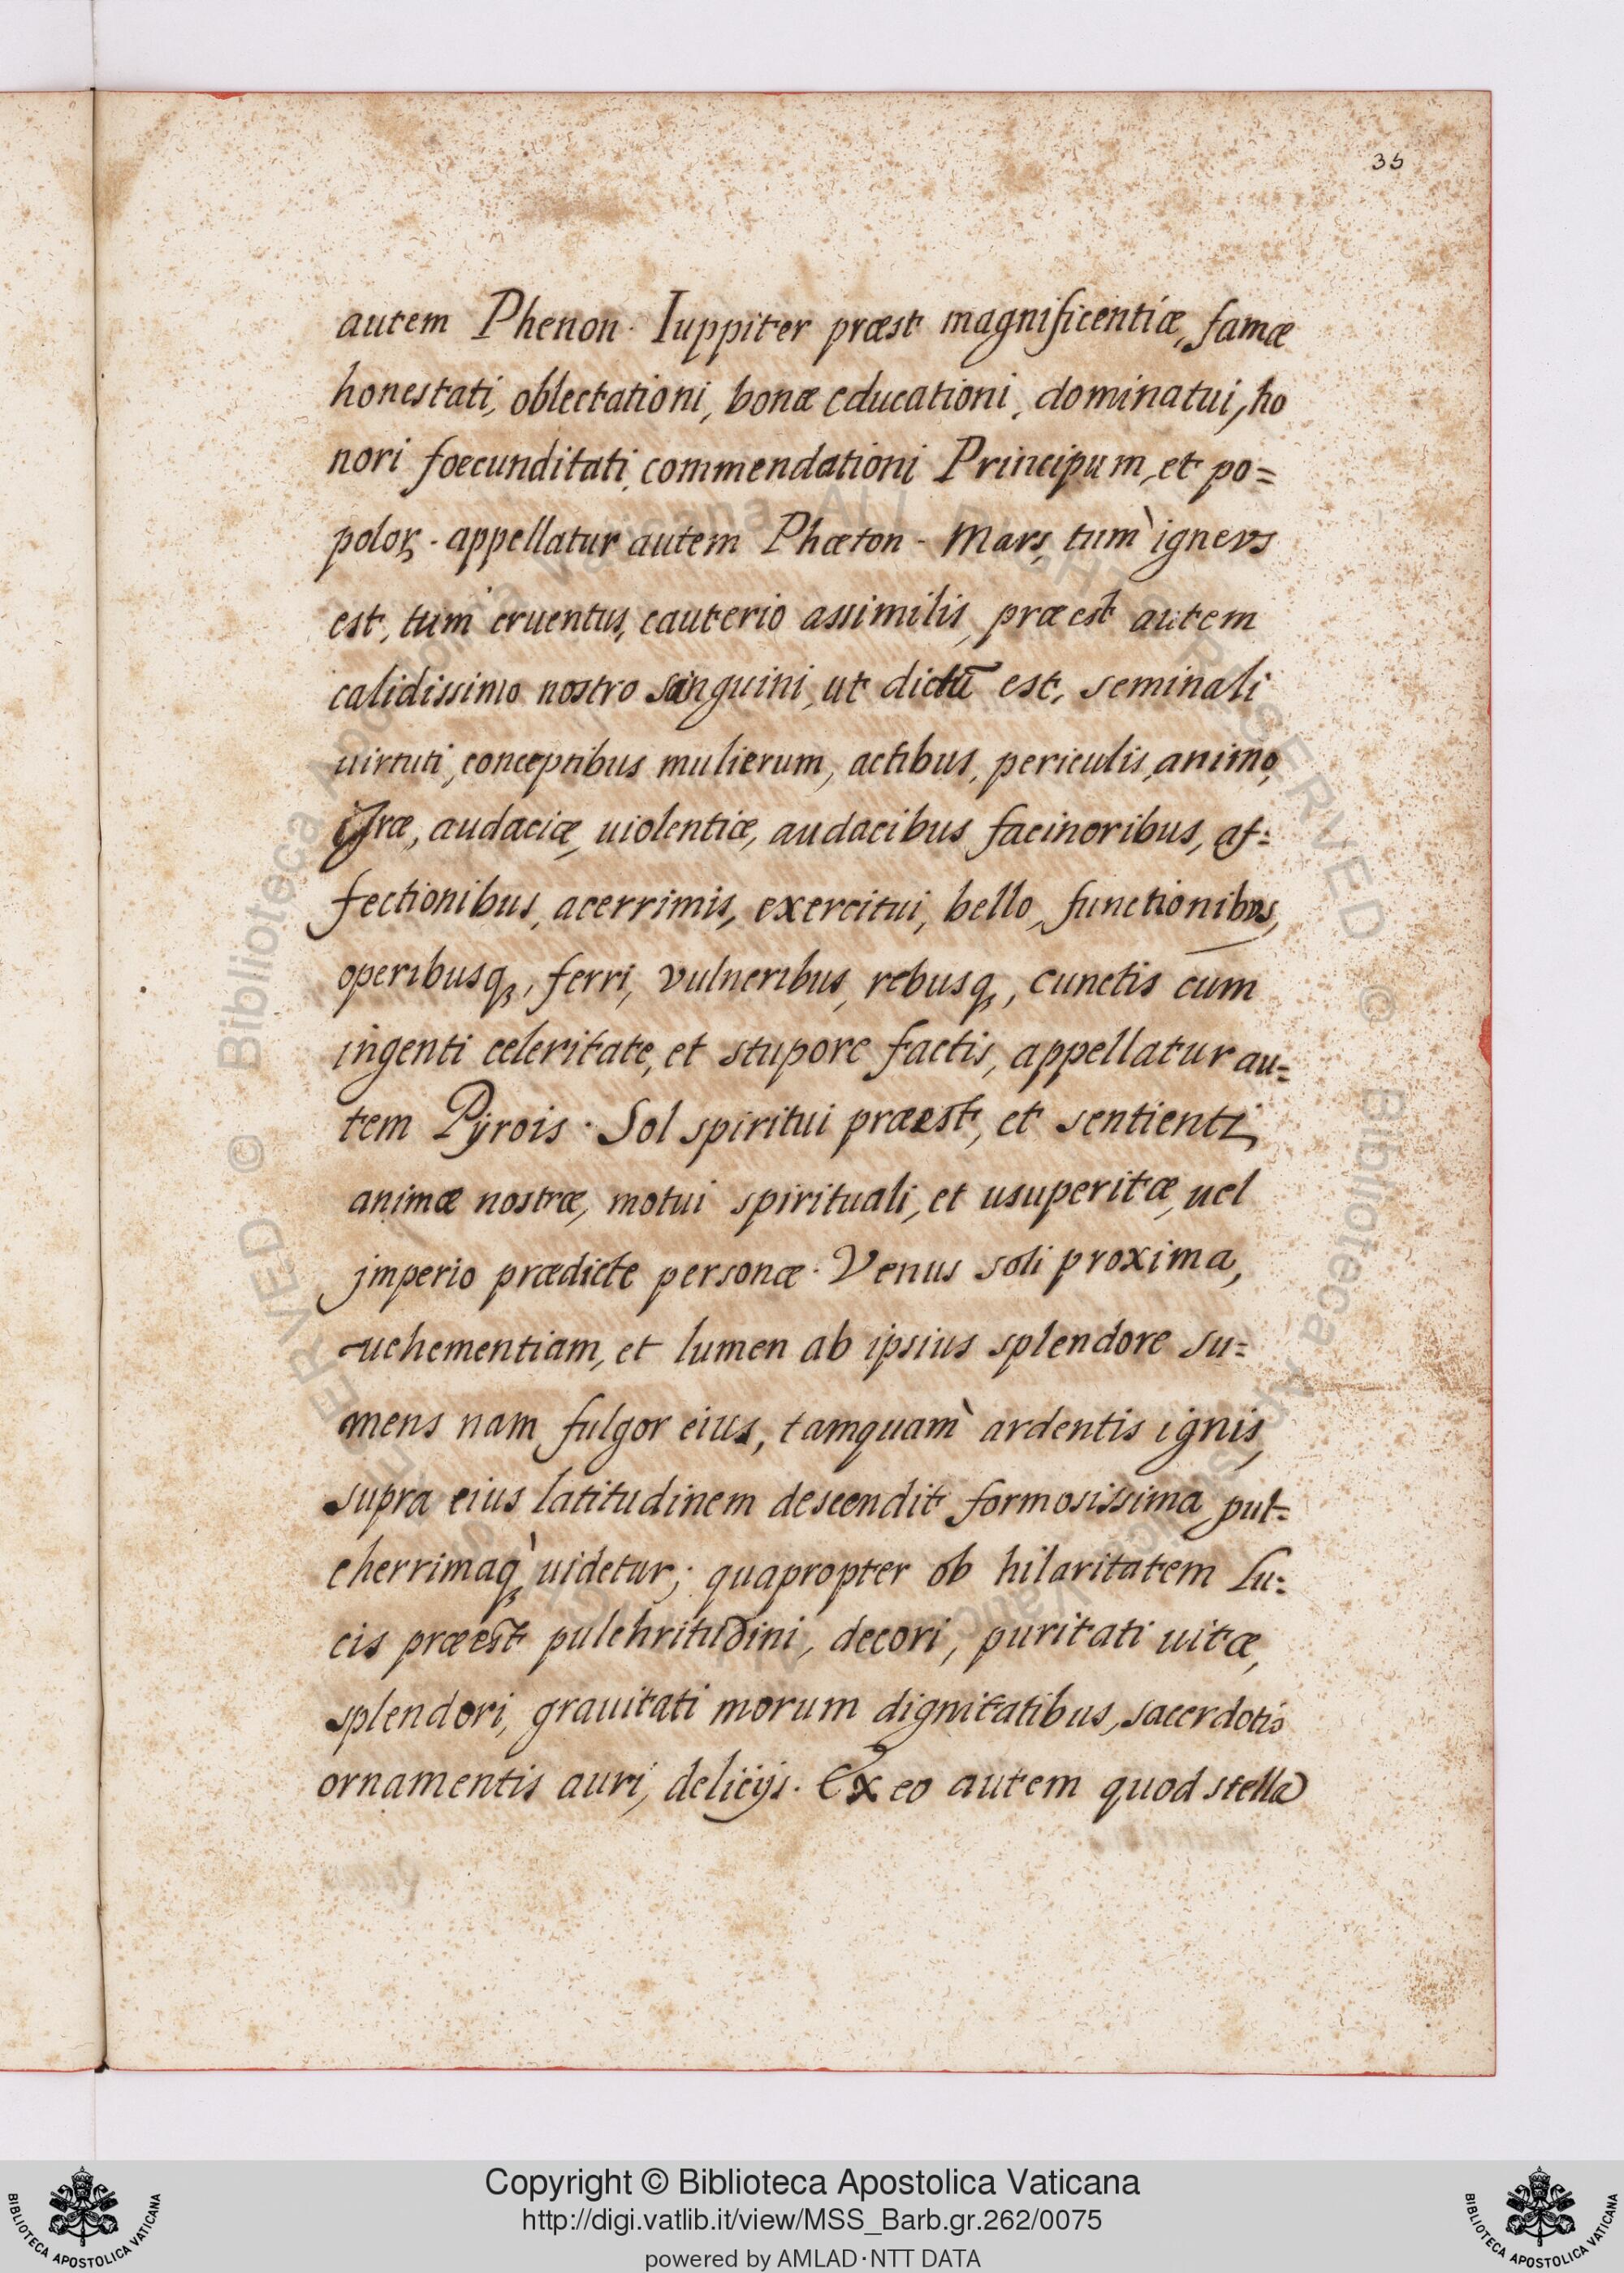 35
autem Phenon. Iuppiter præst magnificentiæ, famæ
honestati, oblectationi, bonæ educationi, dominatui, ho
nori foecunditati, commendationi Principum, et po=
poloꝝ. appellatur autem Phæton - Mars, tum ignevs
est, tum cruentus, cauterio assimilis, præest autem
calidissimo nostro sanguini, ut dictū est, seminali
uirtuti, conceptibus mulierum, actibus, periculis, animo,
Iræ, audaciæ, uiolentiæ, audacibus facinoribus, af=
fectionibus, acerrimis, exercitui, bello, functionibvs,
operibusq, ferri, vulneribus, rebusq, cunctis cum
ingenti celeritate, et stupore factis, appellatur au=
tem Pÿrois. Sol spiritui præest, et sentienti
animæ nostræ, motui spirituali, et usuperitæ, uel
jmperio prædicte personæ. Venus soli proxima,
uehementiam, et lumen ab ipsius splendore su=
mens nam fulgor eius, tamquam̀ ardentis ignis,
supra eius latitudinem descendit formosissima, pul=
cherrimaq̀ uidetur; quapropter ob hilaritatem Lu=
cis præest pulchritudini, decori, puritati uitæ,
splendori, grauitati morum dignitatibus, sacerdotis
ornamentis auri, delicijs. Ex eo autem quod stella
Copyright © Biblioteca Apostolica Vaticana
http://digi.vatlib.it/view/MSS_Barb.gr.262/0075
powered by AMLAD·NTT DATA
BIBLIOTECA APOSTOLICA VATICANA
BIBLIOTECA APOSTOLICA VATICANA